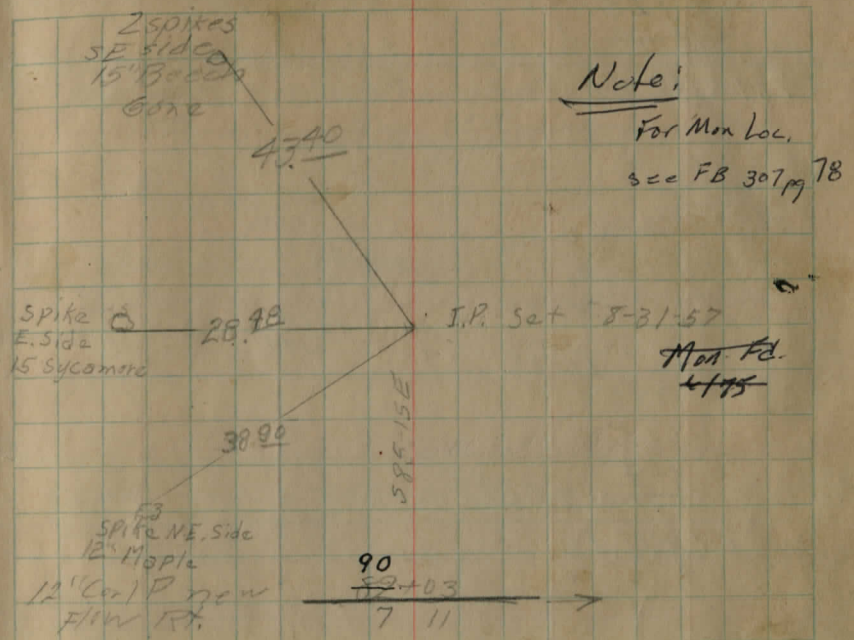 2 spikes
SE side
15" Beech
Gone
43.40
Note:
For Mon Loc.
see FB 307 pg 78
Spike
E. Side
15 Sycamore
28.48
I.P. Set 8-31-57
Mon Fd.
4/75
38.90
S8E-15E
Spike NE. Side
12" Maple
12" Corl P new
Flow Rt.
90
89+03
7 11